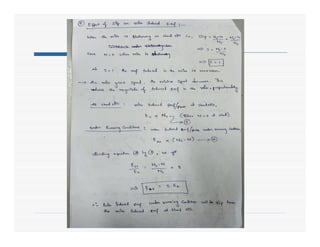 Effect of Slip on rotor Induced Emf :-
When the rotor is stationary or stand still i.e., Slip = Ns-N / Ns = Ns-N / Ns
Since N = 0 when rotor is stationary ⇒ S = Ns-0 / Ns
⇒ S = 1
At S = 1, the emf Induced in the rotor is maximum
⇒ as the rotor gains speed, the relative speed decreases. This
reduces the magnitude of Induced emf in the rotor proportionally
At stand still : rotor Induced Emf/phase at standstill,
E2 ∝ Ns
Under Running Conditions : rotor Induced Emf/phase under running condition,
E2r ∝ (Ns-N)
dividing equation by , we get
E2r / E2 = Ns-N / Ns = S
⇒ E2r = S. E2
∴ Rotor Induced emf under running condition will be slip times
the rotor Induced emf at stand still